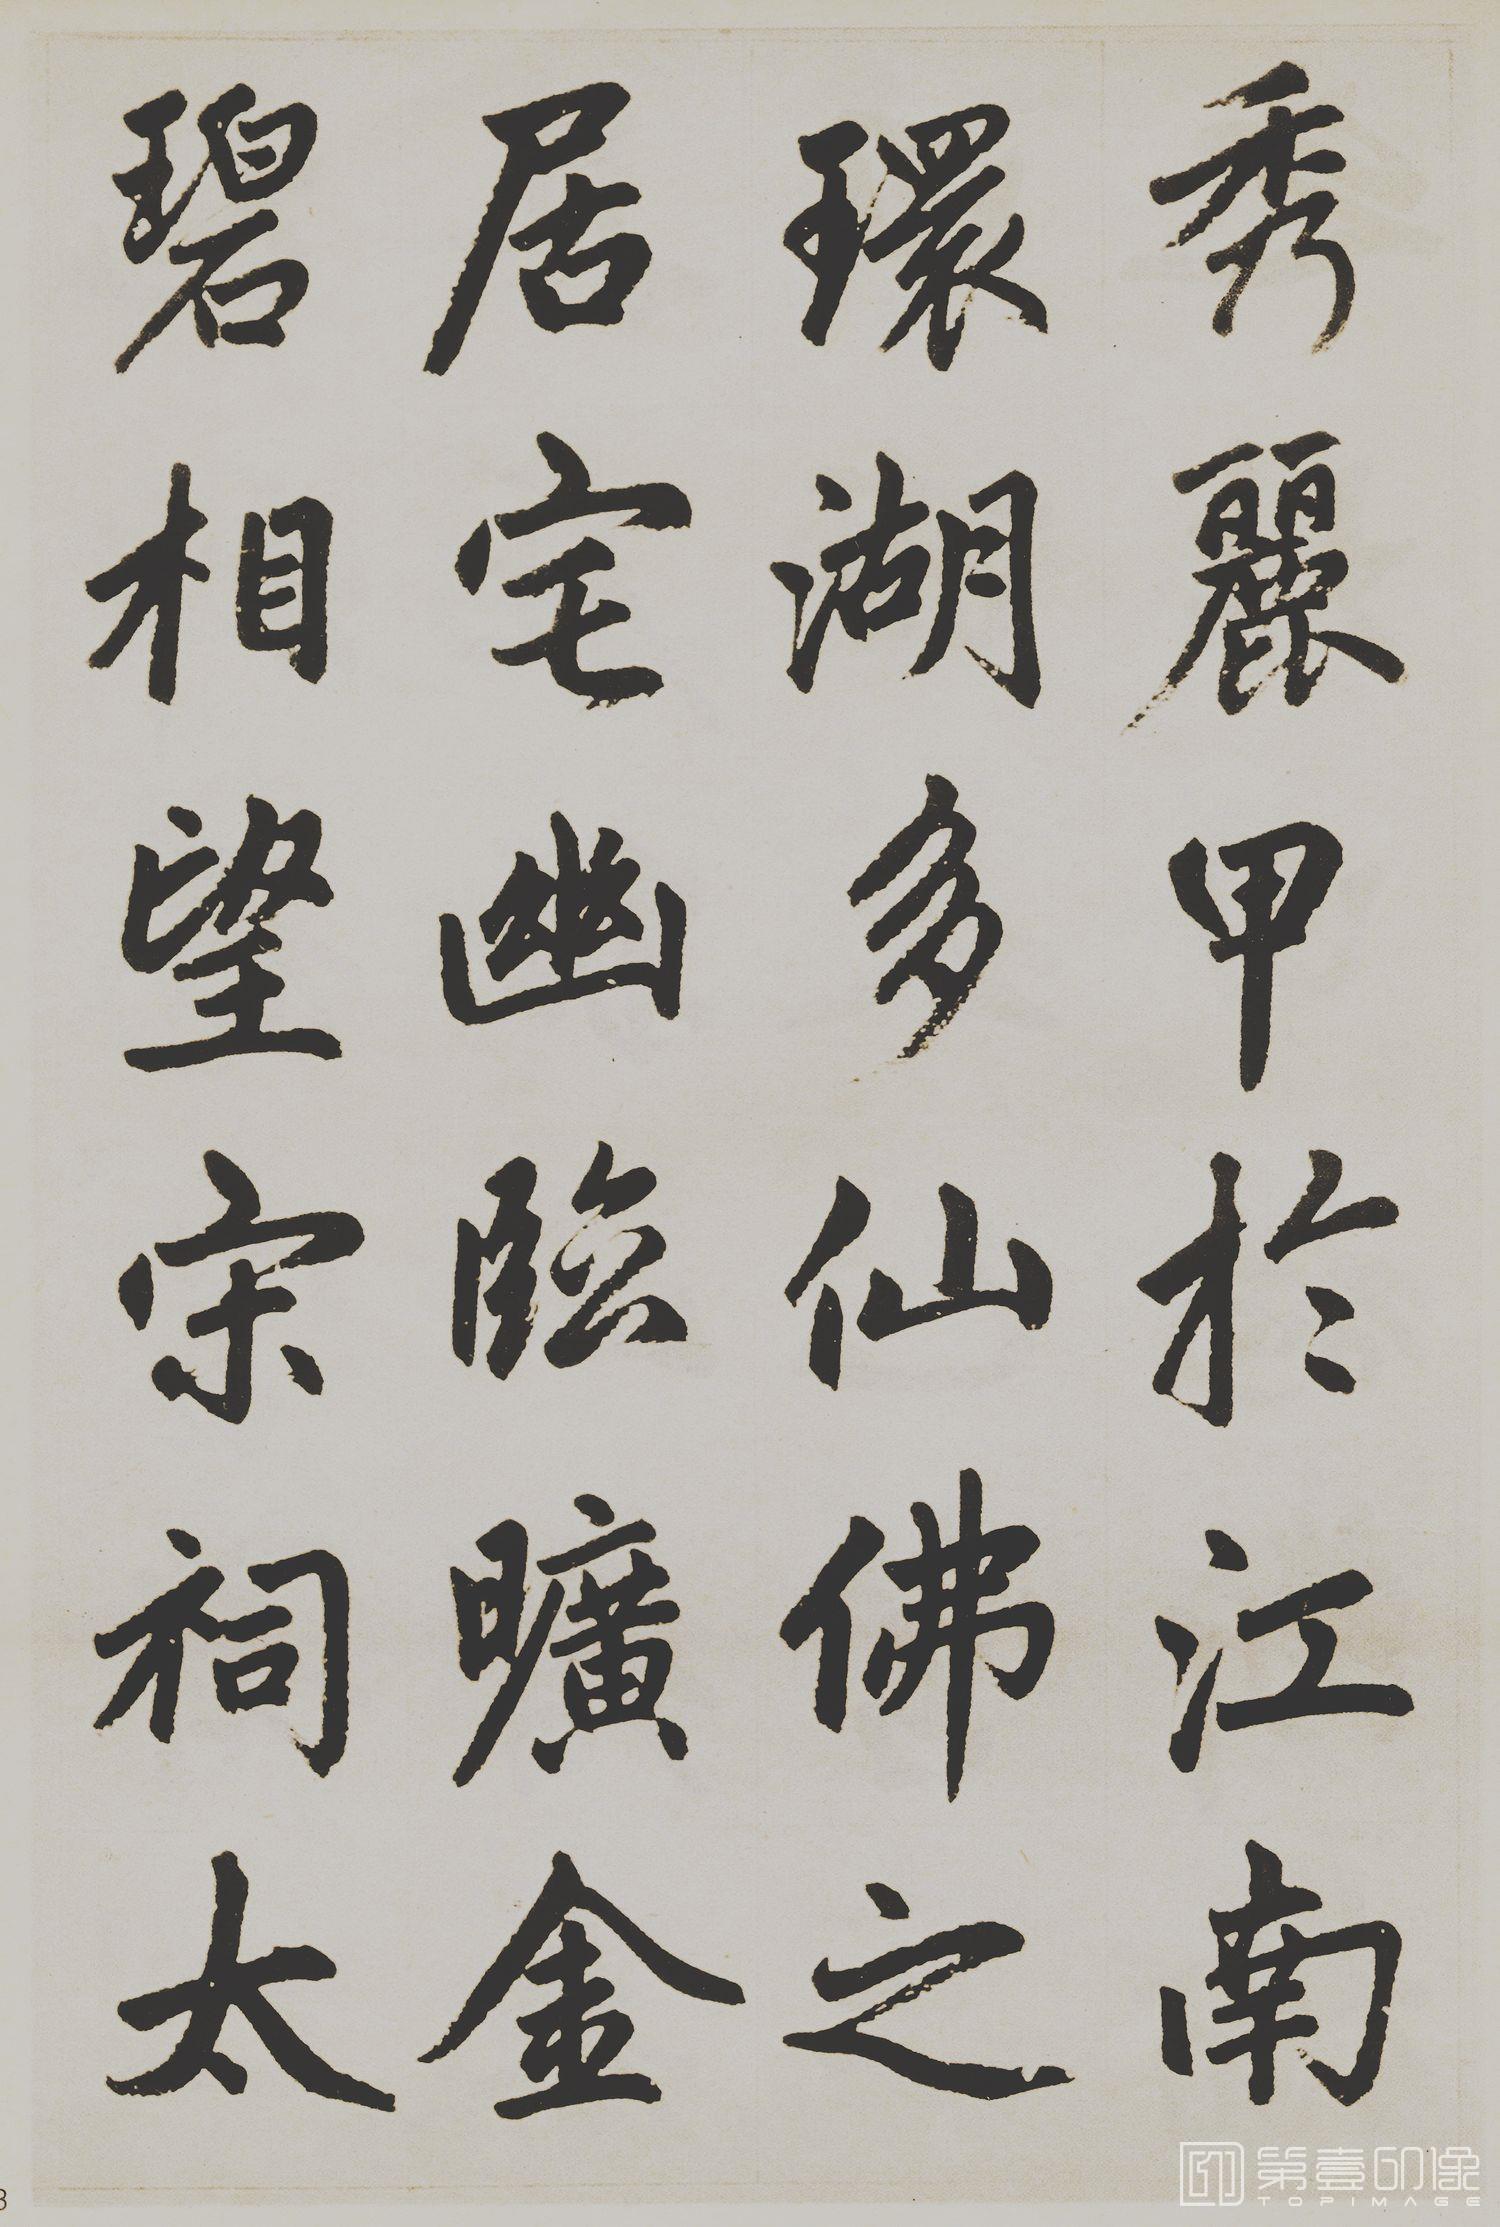 秀麗甲於江南
環湖多仙佛之
居宅幽臨曠金
碧相望宋祠太
第壹印像
TOPIMAGE